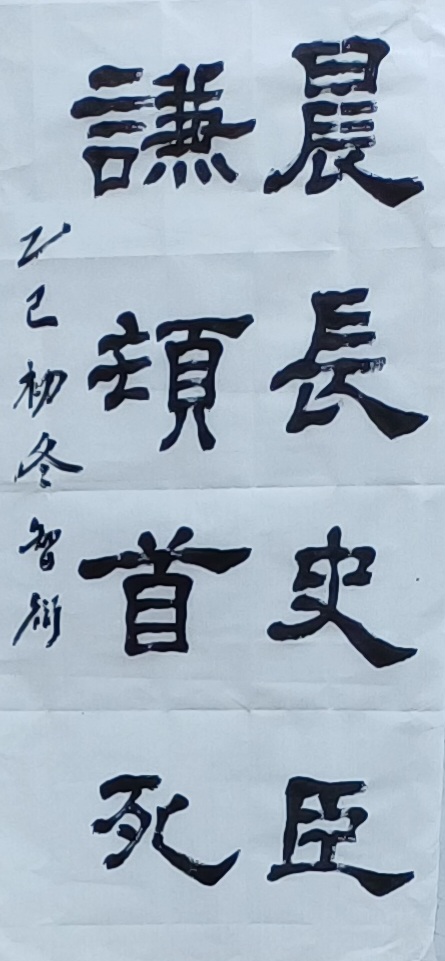 晨長史臣
謙頓首死
乙巳初冬智衍